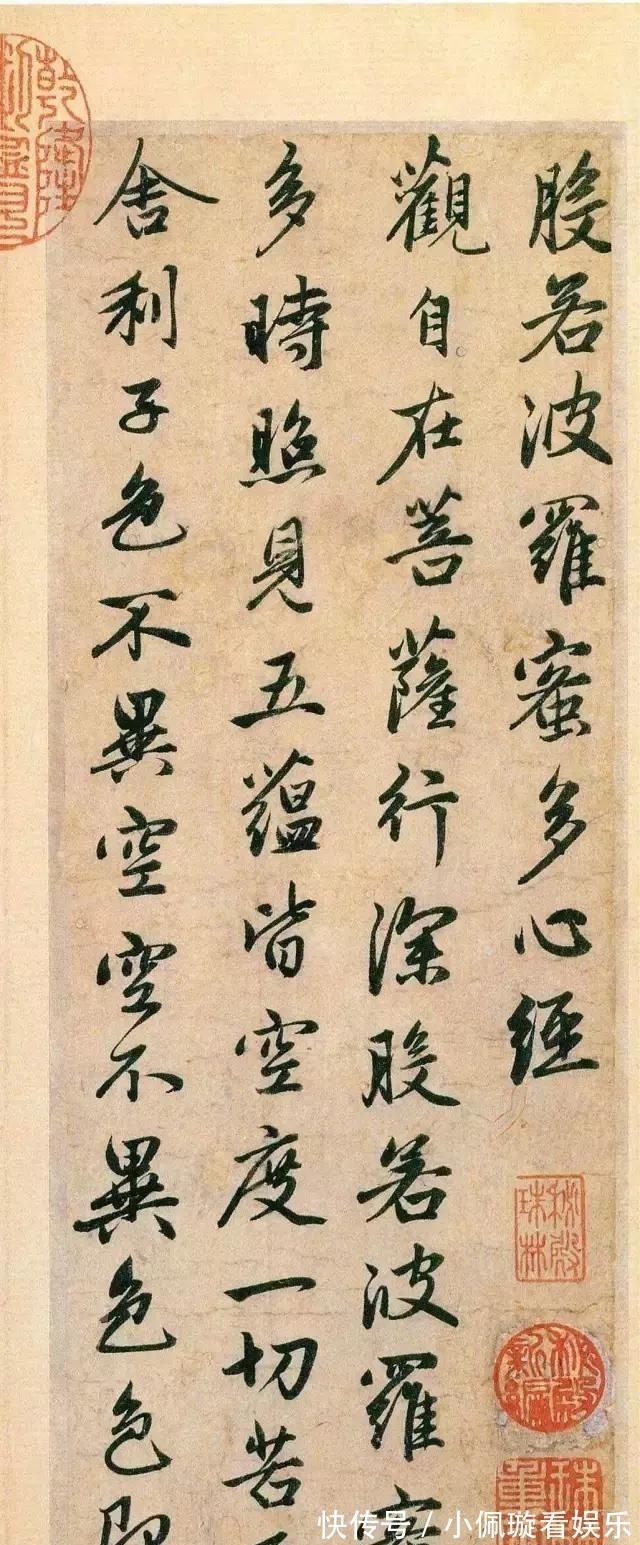 般若波羅蜜多心經
觀自在菩薩行深般若波羅蜜
多時照見五蘊皆空度一切苦
舍利子色不異空空不異色色即
乾隆
秘殿珠林
秘殿新編
快传号 / 小佩璇看娱乐